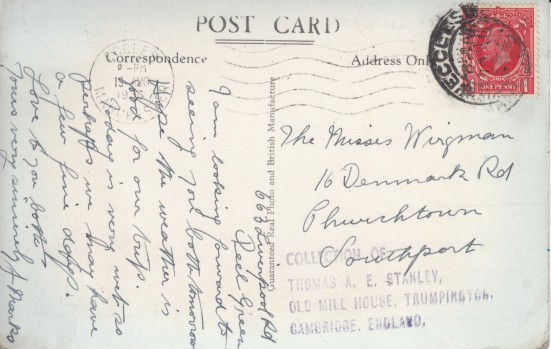 POST CARD
Correspondence
Address Only
ECCLES
8-PM
19
ECCLES
ONE PENNY
1
663 Liverpool Rd
Peel Green
I am looking forward to
seeing you both tomorrow
Hope the weather is
good for our trip.
Today is very wet so
perhaps we may have
a few fine days.
Love to you both
Yours very sincerely
Guaranteed Real Photo and British Manufacture
The Misses Wirgman
16 Denmark Rd
Churchtown
Southport
COLLECTION OF
THOMAS A. E. STANLEY,
OLD MILL HOUSE, TRUMPINGTON,
CAMBRIDGE, ENGLAND,